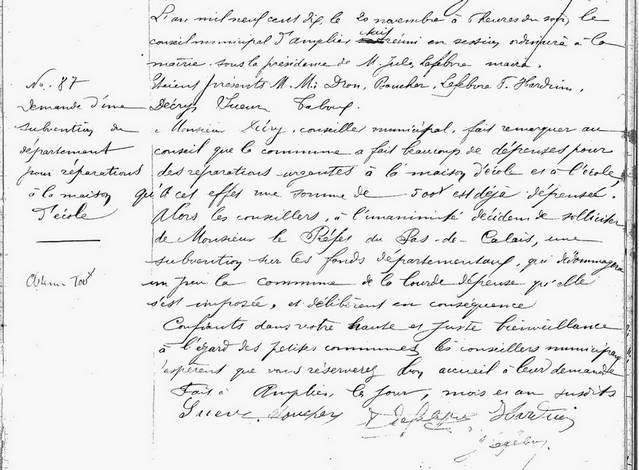 L'an mil neuf cent dix, le 20 novembre à 6 heures du soir, le
conseil municipal d'Amplier s'est réuni en session ordinaire à la
mairie sous la présidence de M. Jules Lefebvre maire.
Etaient présents M. Mi: Dron, Boucher, Lefebvre T. Harduin,
Décry
Monsieur Décry, conseiller municipal, fait remarquer au
conseil que la commune a fait beaucoup de dépenses pour
des réparations urgentes à la maison d'école et à l'école,
qu'à cet effet une somme de 500f est déjà dépensée.
Alors les conseillers, à l'unanimité décident de solliciter
de Monsieur le Préfet du Pas-de-Calais, une
subvention sur les fonds départementaux, qui dédommagera
un peu la commune de la lourde dépense qu'elle
s'est imposée, et délibèrent en conséquence
Confiants dans votre haute et juste bienveillance
à l'égard des petites communes, les conseillers municipaux
espèrent que vous réserverez bon accueil à leur demande
Fait à Amplier, les jour, mois et an susdits
Boucher Lefebvre Harduin
No. 87
Demande d'une
subvention du
département
pour réparations
à la maison
d'école